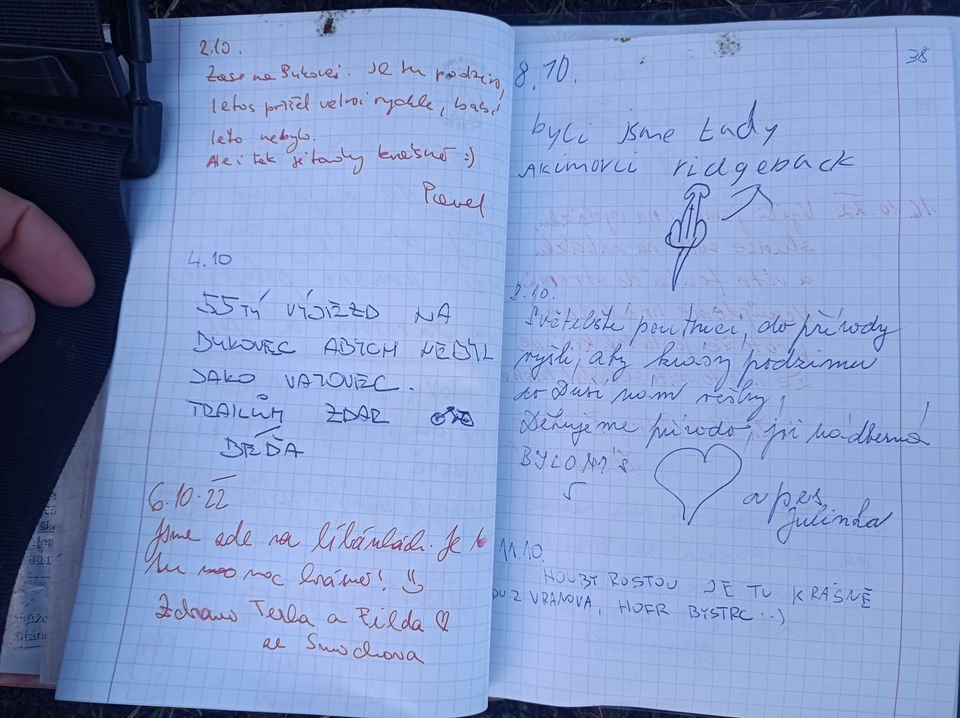 2.10.
Zase na Bukovci. Je tu podzim,
letos přišel velmi rychle, babí
léto nebylo.
Ale i tak je tady krásně :)
Pavel
4.10
55TÝ VÝJEZD NA
BUKOVEC ABYCH NEBYL
JAKO VAZOVEC.
TRAILŮM ZDAR
BÉĎA
6.10.22
Jsme zde na líbánkách. Je
tu moc krásně!
Zdraví Terka a Filda
ze Smíchova
38
8.10.
byli jsme tady
ridgeback
8.10.
poutníci, do přírody
vyšli, aby krásy podzimu
do duší nám vešly,
Děkujeme přírodo, jsi nádherná!
a pes
Julinka
11.10.
HOUBY ROSTOU JE TU KRÁSNĚ
Z VRANOVA, HOFR BYSTRC :-)